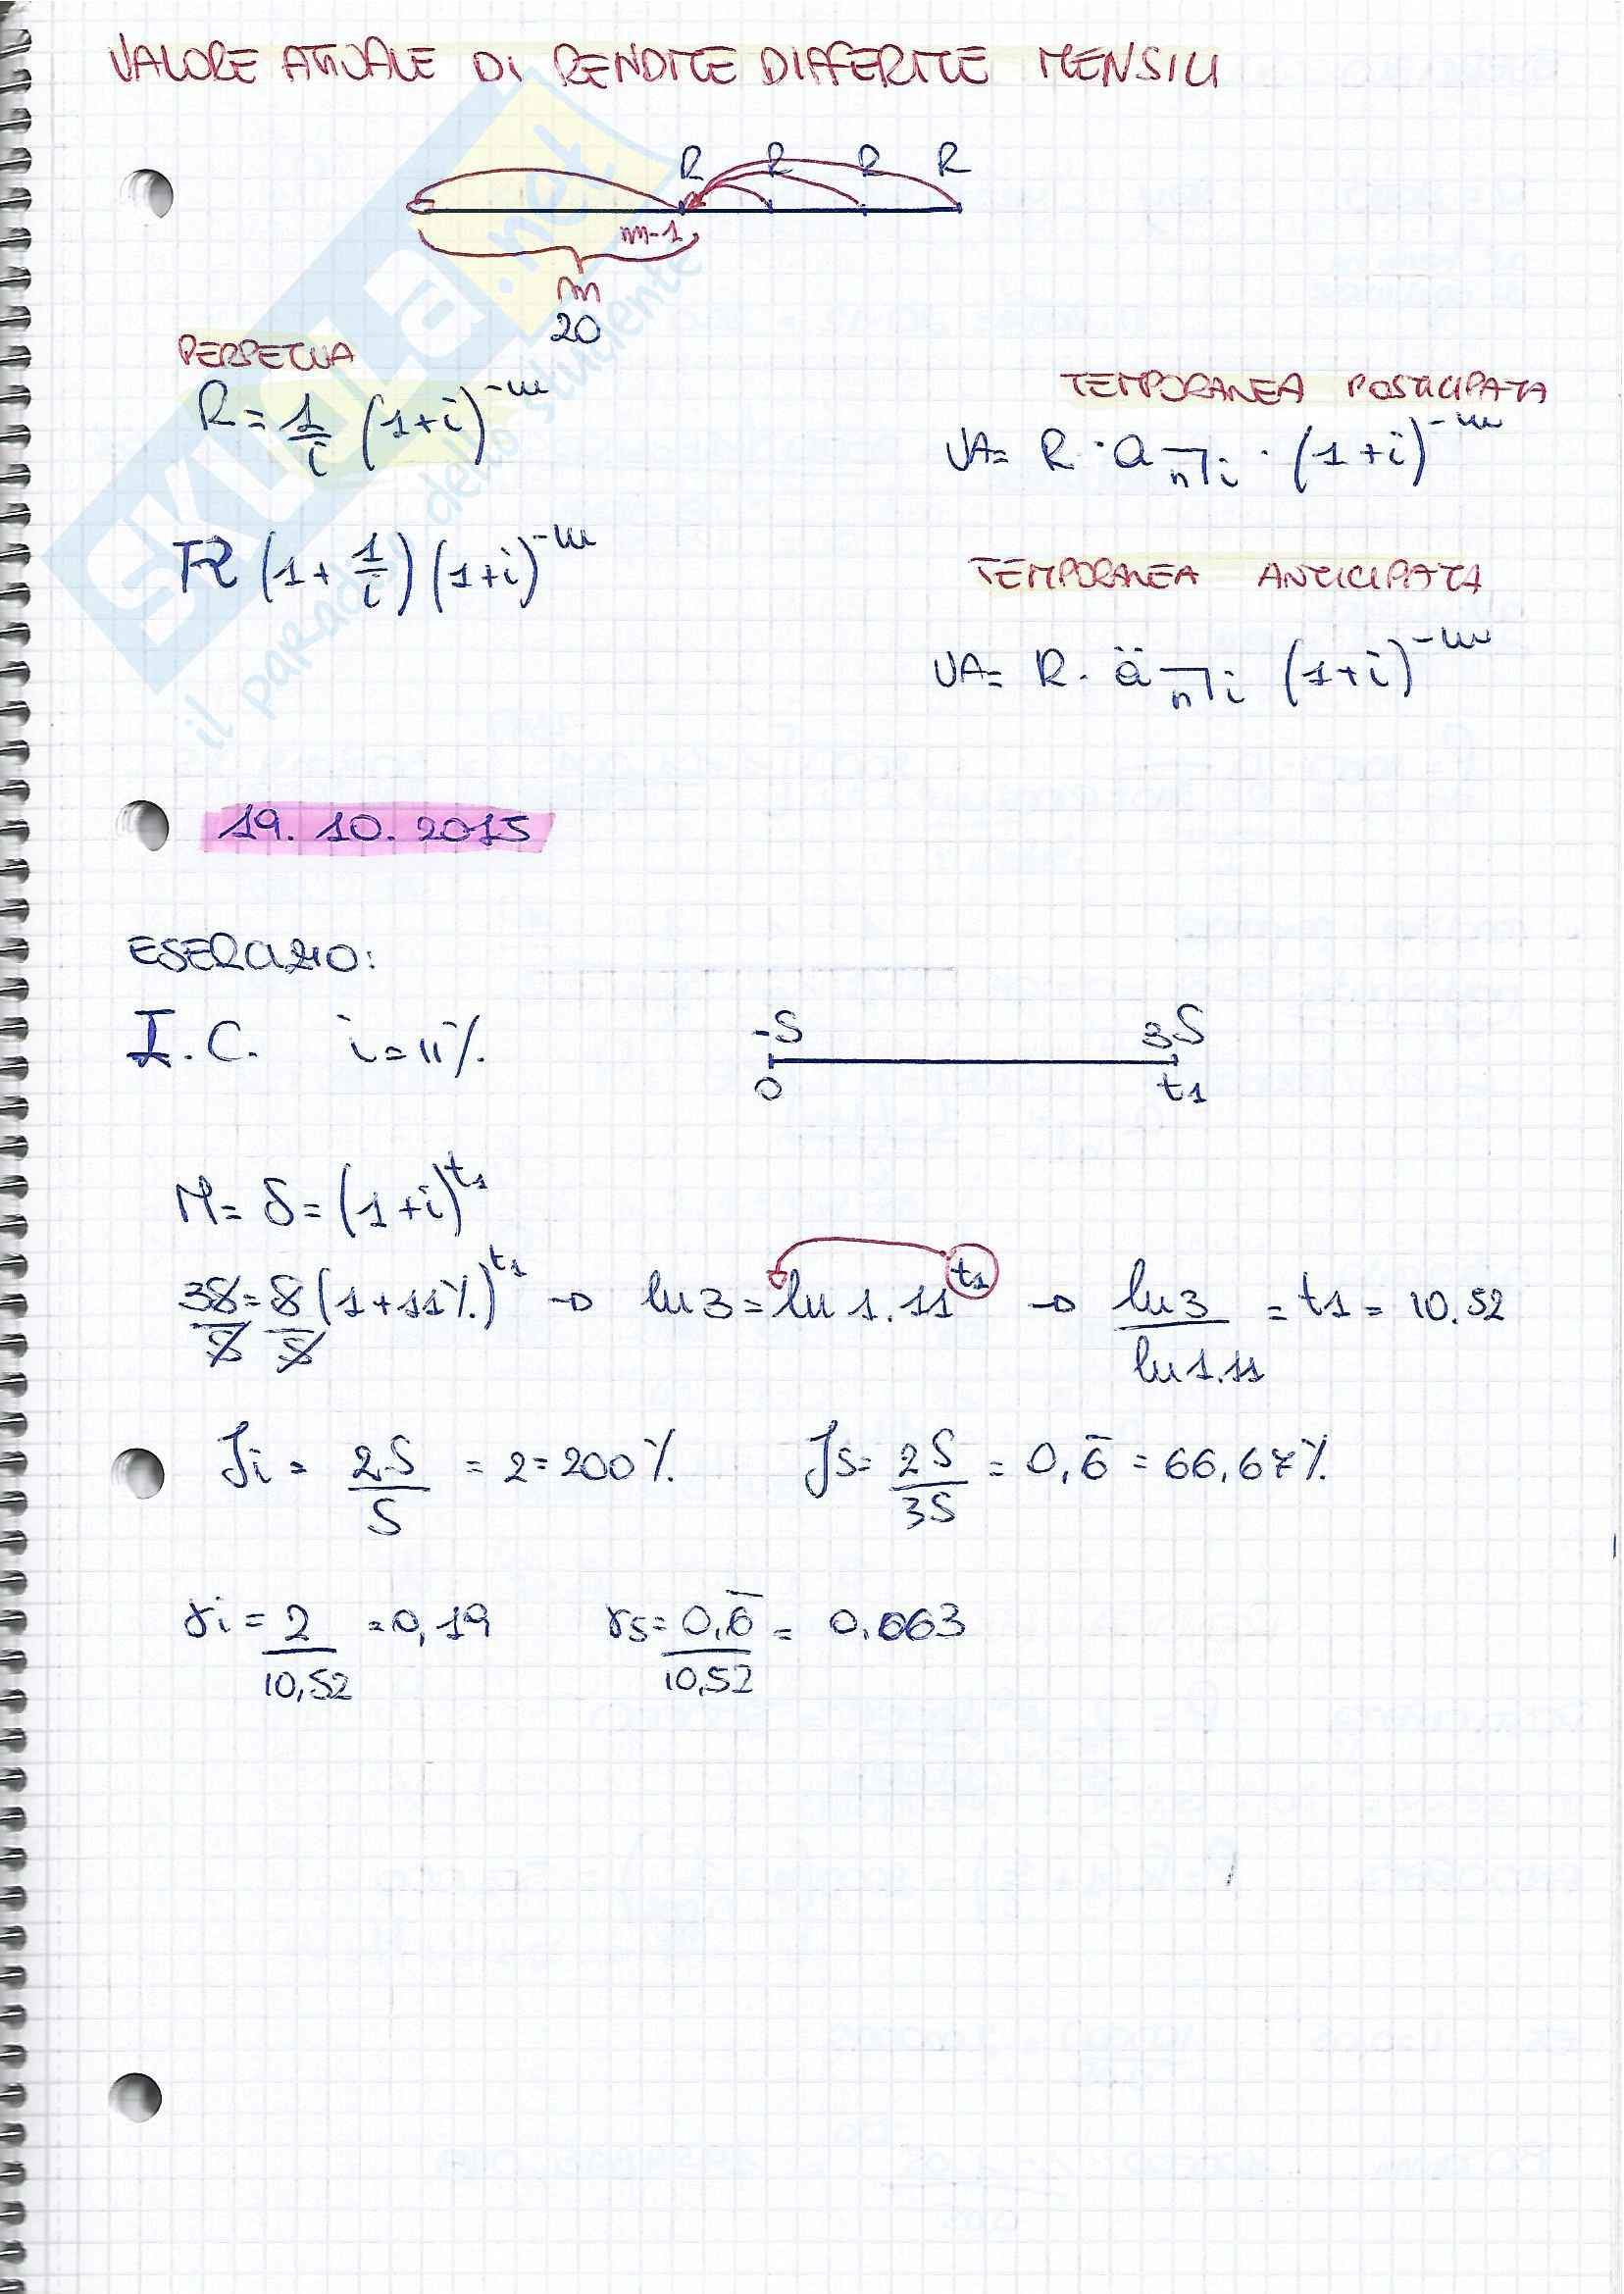 VALORE ATTUALE DI RENDITE DIFFERITE MENSILI
R R R R
m-1
m
20
PERPETUA
R = 1/i (1+i)^-m
TEMPORANEA POSTICIPATA
VA = R · a n⌉i · (1+i)^-m
R (1 + 1/i) (1+i)^-m
TEMPORANEA ANTICIPATA
VA = R · ä n⌉i (1+i)^-m
19. 10. 2015
ESERCIZIO:
I.C. i = 11%
-S 3S
0 t1
M = S = (1+i)^t1
3S/S = S/S (1+11%)^t1 → ln 3 = ln 1.11^t1 → ln 3 / ln 1.11 = t1 = 10.52
Ji = 2S/S = 2 = 200% Js = 2S/3S = 0,6̅ = 66,67%
γi = 2/10,52 = 0,19 γs = 0,6̅/10,52 = 0.063
SKUOLA.net
il paradiso dello studente